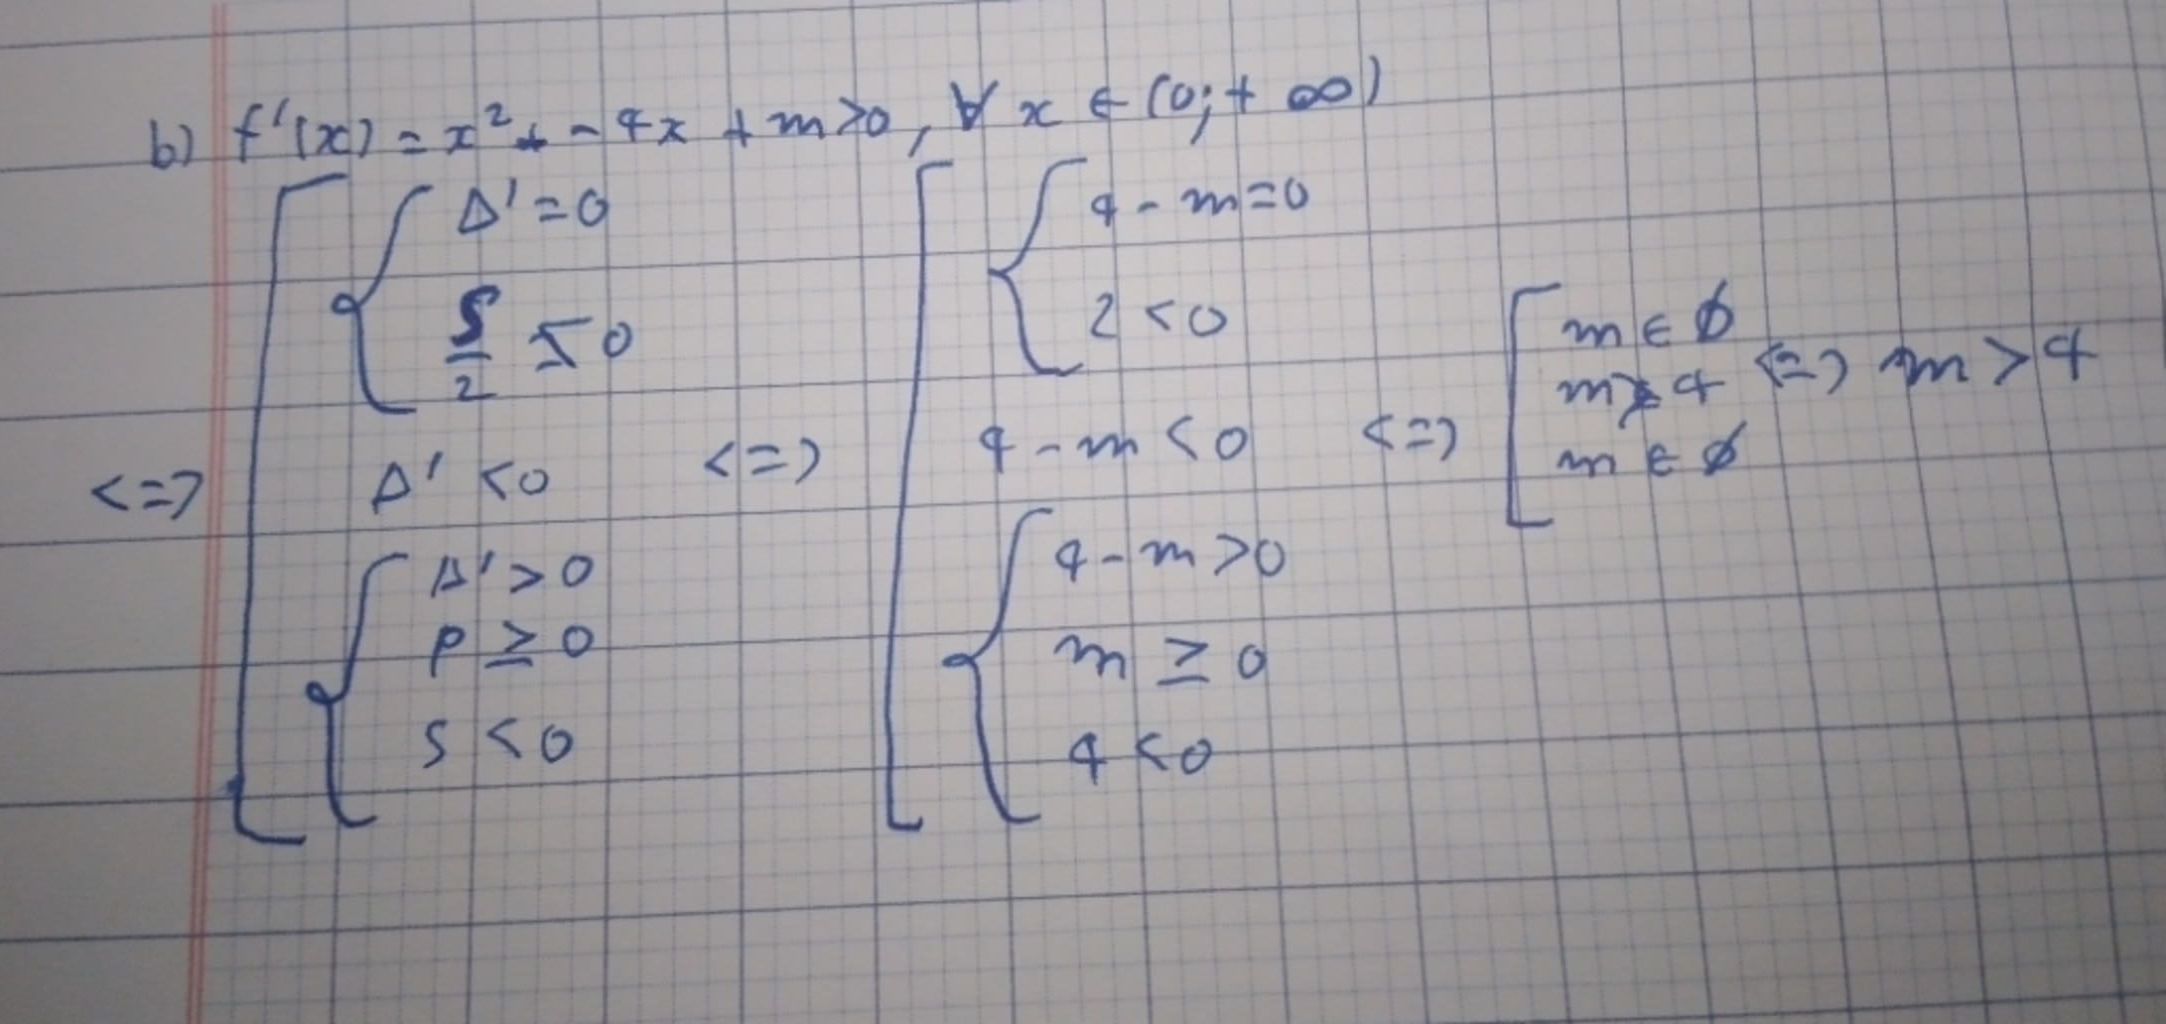 b) f'(x) = x² + - 4x + m > 0, ∀ x ∈ (0; + ∞)
<=> [ { Δ' = 0
S/2 ≤ 0
Δ' < 0
{ Δ' > 0
P ≥ 0
S < 0
<=> [ { 4 - m = 0
2 < 0
4 - m < 0
{ 4 - m > 0
m ≥ 0
4 < 0
<=> [ m ∈ ∅
m > 4
m ∈ ∅
<=> m > 4